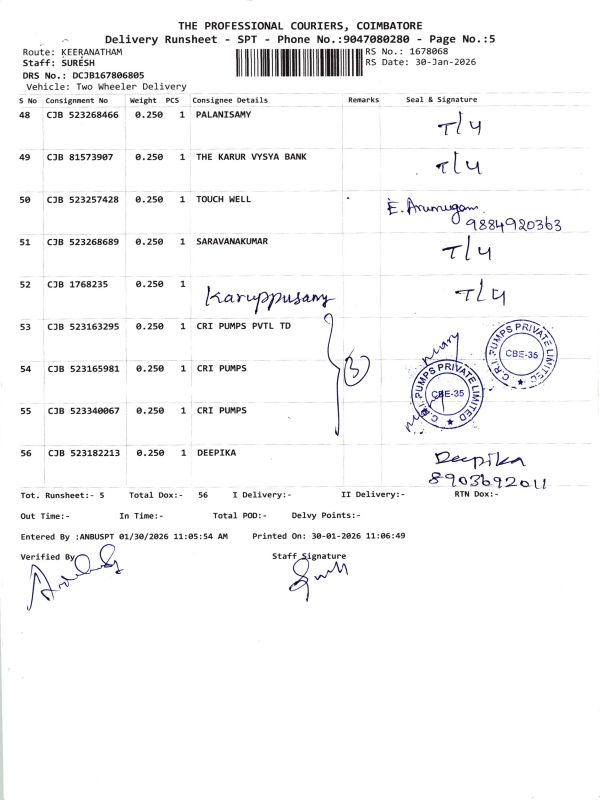 THE PROFESSIONAL COURIERS, COIMBATORE
Delivery Runsheet - SPT - Phone No.:9047080280 - Page No.:5
Route: KEERANATHAM RS No.: 1678068
Staff: SURESH RS Date: 30-Jan-2026
DRS No.: DCJB167806805
Vehicle: Two Wheeler Delivery
S No Consignment No Weight PCS Consignee Details Remarks Seal & Signature
48 CJB 523268466 0.250 1 PALANISAMY T/4
49 CJB 81573907 0.250 1 THE KARUR VYSYA BANK T/4
50 CJB 523257428 0.250 1 TOUCH WELL E. Arumugam
9884920363
51 CJB 523268689 0.250 1 SARAVANAKUMAR T/4
52 CJB 1768235 0.250 1 Karuppusamy T/4
53 CJB 523163295 0.250 1 CRI PUMPS PVTL TD
C.R.I. PUMPS PRIVATE LIMITED
CBE-35
54 CJB 523165981 0.250 1 CRI PUMPS 3
C.R.I. PUMPS PRIVATE LIMITED
CBE-35
55 CJB 523340067 0.250 1 CRI PUMPS
56 CJB 523182213 0.250 1 DEEPIKA Deepika
8903692011
Tot. Runsheet:- 5 Total Dox:- 56 I Delivery:- II Delivery:- RTN Dox:-
Out Time:- In Time:- Total POD:- Delvy Points:-
Entered By :ANBUSPT 01/30/2026 11:05:54 AM Printed On: 30-01-2026 11:06:49
Verified By Staff Signature